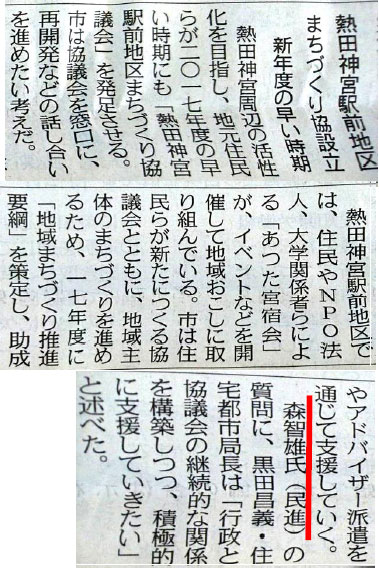 熱田神宮駅前地区
まちづくり協設立
新年度の早い時期
熱田神宮周辺の活性
化を目指し、地元住民
らが二〇一七年度の早
い時期にも「熱田神宮
駅前地区まちづくり協
議会」を発足させる。
市は協議会を窓口に、
再開発などの話し合い
を進めたい考えだ。
熱田神宮駅前地区で
は、住民やNPO法
人、大学関係者らによ
る「あつた宮宿会」
が、イベントなどを開
催して地域おこしに取
り組んでいる。市は住
民らが新たにつくる協
議会とともに、地域主
体のまちづくりを進め
るため、一七年度に
「地域まちづくり推進
要綱」を策定し、助成
やアドバイザー派遣を
通じて支援していく。
森智雄氏（民進）の
質問に、黒田昌義・住
宅都市局長は「行政と
協議会の継続的な関係
を構築しつつ、積極的
に支援していきたい」
と述べた。